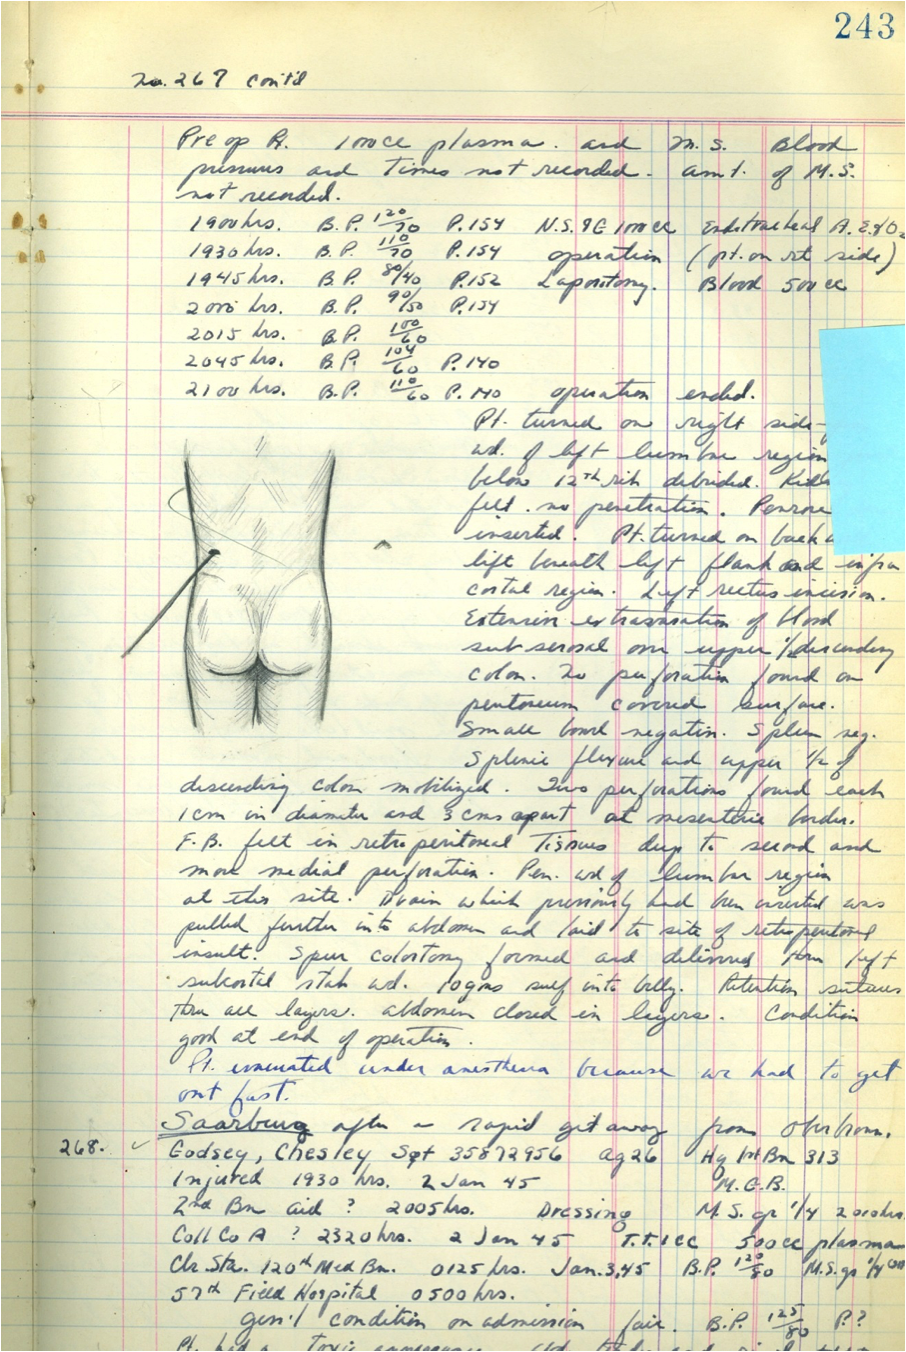 243
No. 267 cont'd
Pre op Rx. 100cc plasma. and M.S. Blood
pressures and times not recorded. amt. of M.S.
not recorded.
1900hrs. B.P. 120/70 P.154 N.S. 9C 100cc Endotracheal A.E.&O2
1930hrs. B.P. 110/70 P.154 operation (pt. on rt side)
1945hrs. B.P. 80/40 P.152 Laporotomy. Blood 500cc
2000 hrs. B.P. 90/50 P.154
2015 hrs. B.P. 100/60
2045 hrs. B.P. 104/60 P.140
2100 hrs. B.P. 110/60 P.140 operation ended.
Pt. turned on right side-
wd. of left lumbar region
below 12th rib debrided.
felt. no penetration. Penrose
inserted. Pt. turned on back
lift beneath left flank and infra
costal region. Left rectus incision.
Extensive extravasation of blood
sub serosal over upper 1/2 descending
colon. No perforation found on
peritoneum covered surface.
Small bowel negative. Spleen neg.
Splenic flexure and upper 1/2 of
descending colon mobilized. Two perforations found each
1cm in diameter and 3 cms apart at mesenteric border.
F.B. felt in retroperitoneal Tissues deep to second and
more medial perforation. Pen. wd of lumbar region
at this site. Drain which previously had been inserted was
pulled further into abdomen and laid to site of retroperitoneal
insult. Spur colostomy formed and delivered thru left
subcostal stab wd. 10 gms sulf into belly. Retention sutures
thru all layers. abdomen closed in layers. Condition
good at end of operation.
Pt. evacuated under anesthesia because we had to get
out fast.
Saarburg after a rapid get away from Oberbronn.
268. ✓ Godsey, Chesley Sgt 35872956 Ag 26 Hq 1st Bn 313
Injured 1930 hrs. 2 Jan 45 M.C.B.
2nd Bn aid ? 2005hrs. Dressing M.S. gr 1/4 2010hrs.
Coll Co A ? 2320hrs. 2 Jan 45 T.T. 1cc 500cc plasma
Clr. Sta. 120th Med Bn. 0125 hrs. Jan. 3, 45 B.P. 120/80 M.S. gr 1/4
57th Field Hospital 0500 hrs.
gen'l condition on admission fair. B.P. 125/80 P.?
Pt. had a toxic appearance.